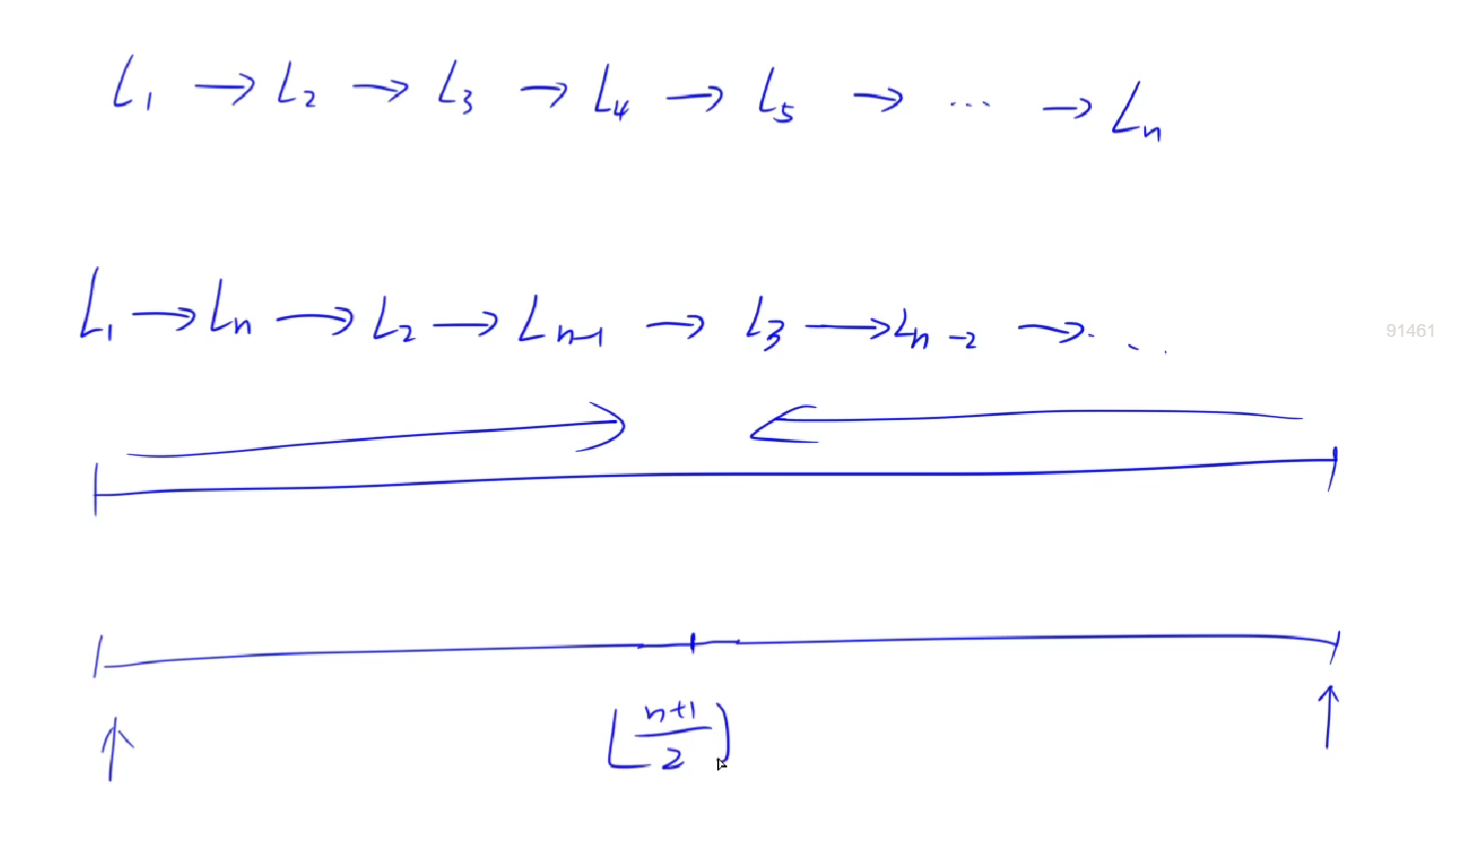 L₁ → L₂ → L₃ → L₄ → L₅ → ... → Lₙ
L₁ → Lₙ → L₂ → Lₙ₋₁ → L₃ → Lₙ₋₂ → ...
91461
⌊(n+1)/2⌋